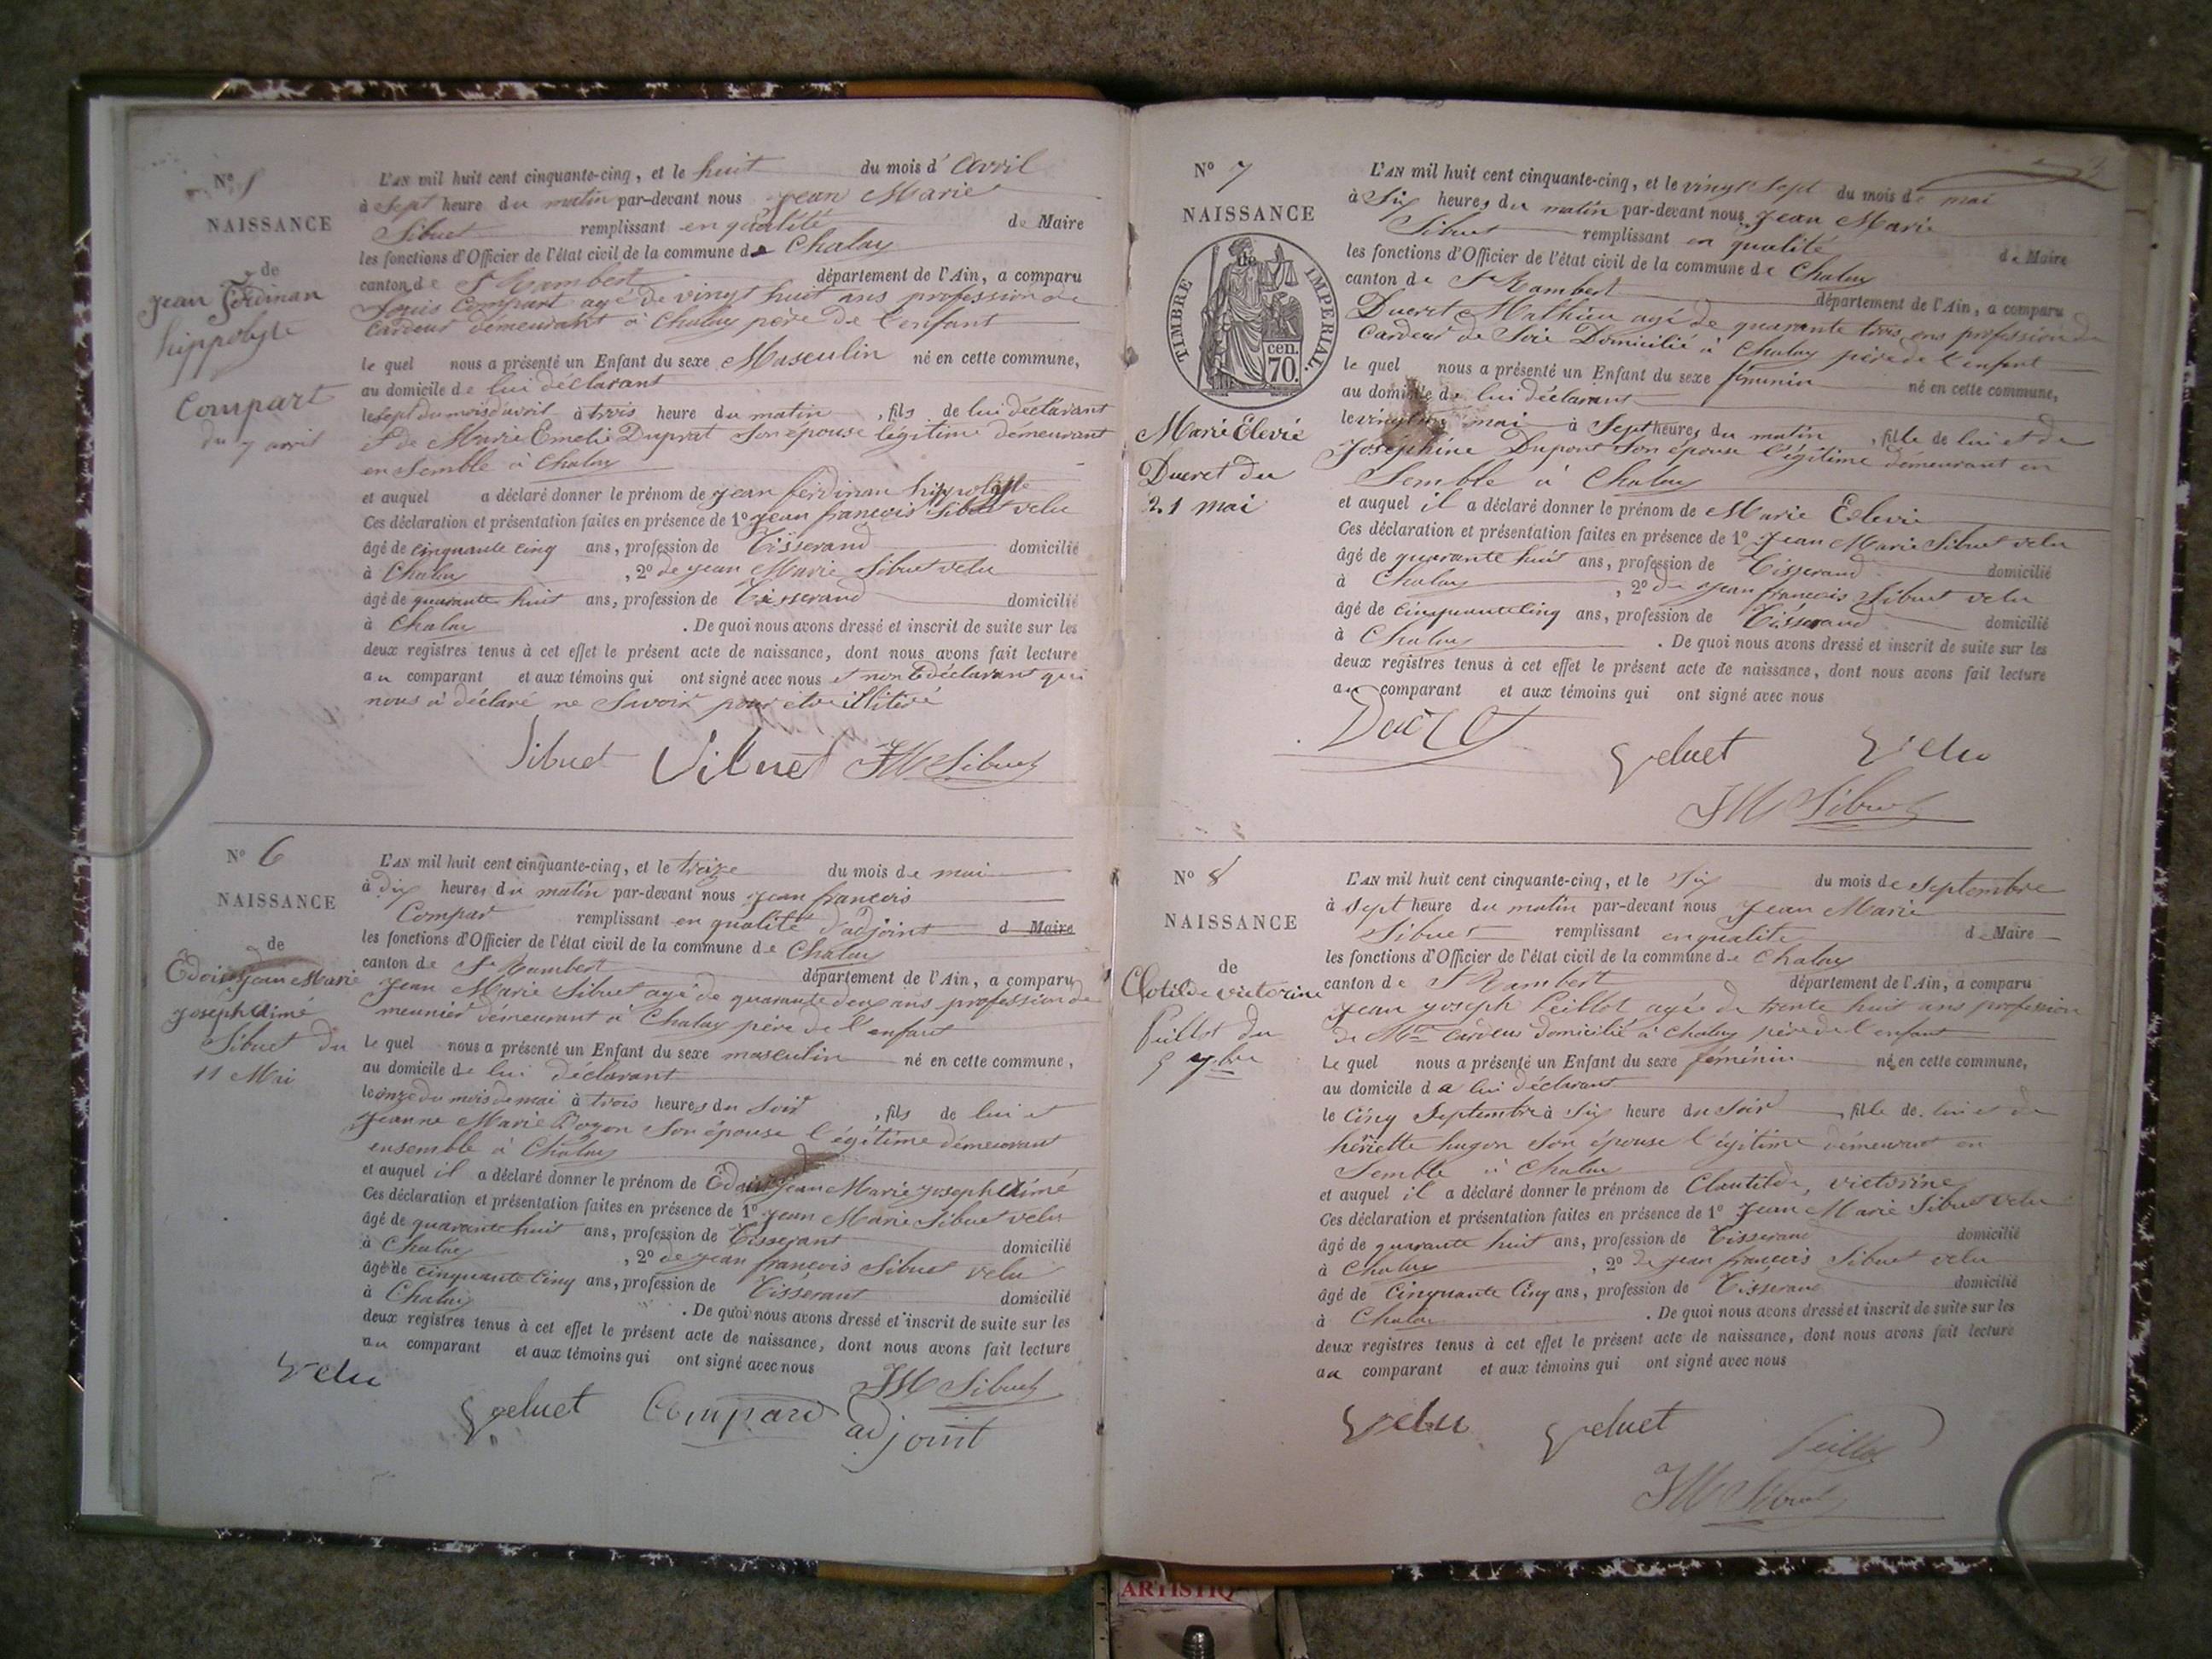 N° 5
NAISSANCE
de
Jean ferdinan
hippolyte
Compart
du 7 avril
L'AN mil huit cent cinquante-cinq, et le huit du mois d'avril
à Sept heure du matin par-devant nous Jean Marie
Sibuet remplissant en qualité de Maire
les fonctions d'Officier de l'état civil de la commune de Chalay
canton de St Rambert département de l'Ain, a comparu
Louis Compart agé de vingt huit ans profession de
Cardeur démeurant à Chalay père de l'enfant
le quel nous a présenté un Enfant du sexe Masculin né en cette commune,
au domicile de lui déclarant
le sept du mois d'avril à trois heure du matin, fils de lui déclarant
et de Marie Emelie Duprat son épouse légitime démeurant
en semble à Chalay
et auquel a déclaré donner le prénom de Jean ferdinan hippolyte
Ces déclaration et présentation faites en présence de 1° Jean francois Sibuet velu
âgé de cinquante cinq ans, profession de Tisserand domicilié
à Chalay, 2° de Jean Marie Sibuet velu
âgé de quarante huit ans, profession de Tisserand domicilié
à Chalay. De quoi nous avons dressé et inscrit de suite sur les
deux registres tenus à cet effet le présent acte de naissance, dont nous avons fait lecture
au comparant et aux témoins qui ont signé avec nous et non le déclarant qui
nous à déclaré ne Savoir pour etre illitéré
Sibuet Viluet JM Sibuet
N° 6
NAISSANCE
de
Jean Marie
Joseph Aimé
Sibuet du
11 Mai
L'AN mil huit cent cinquante-cinq, et le treize du mois de mai
à dix heures du matin par-devant nous Jean francois
Compar remplissant en qualité d'adjoint d Maire
les fonctions d'Officier de l'état civil de la commune de Chalay
canton de St Rambert département de l'Ain, a comparu
Jean Marie Sibuet agé de quarante deux ans profession de
meunier démeurant à Chalay père de l'enfant
le quel nous a présenté un Enfant du sexe masculin né en cette commune,
au domicile de lui déclarant
le onze du mois de mai à trois heures du Soir, fils de lui et
Jeanne Marie Bozon Son épouse légitime démeurant
ensemble à Chalay
et auquel il a déclaré donner le prénom de Jean Marie Joseph Aimé
Ces déclaration et présentation faites en présence de 1° Jean Marie Sibuet velu
âgé de quarante huit ans, profession de Tisserant domicilié
à Chalay, 2° de Jean francois Sibuet velu
âgé de cinquante cinq ans, profession de Tisserant domicilié
à Chalay. De quoi nous avons dressé et inscrit de suite sur les
deux registres tenus à cet effet le présent acte de naissance, dont nous avons fait lecture
au comparant et aux témoins qui ont signé avec nous
velu JM Sibuet
veluet Compard adjoint
N° 7
NAISSANCE
de
TIMBRE IMPERIAL.
cen.
70.
Marie Elevie
Ducret du
21 mai
L'AN mil huit cent cinquante-cinq, et le vingt Sept du mois de mai
à Six heures du matin par-devant nous Jean Marie
Sibuet remplissant en qualité de Maire
les fonctions d'Officier de l'état civil de la commune de Chalay
canton de St Rambert département de l'Ain, a comparu
Ducret Mathieu agé de quarante trois ans profession de
Cardeur de Soie Domicilié à Chalay père de l'enfant
le quel nous a présenté un Enfant du sexe féminin né en cette commune,
au domicile de lui déclarant
mai à Sept heures du matin, fille de lui et de
Joséphine Dupont Son épouse légitime démeurant en
Semble à Chalay
et auquel il a déclaré donner le prénom de Marie Elevie
Ces déclaration et présentation faites en présence de 1° Jean Marie Sibuet velu
âgé de quarante huit ans, profession de Tisserand domicilié
à Chalay, 2° de Jean francois Sibuet velu
âgé de cinquante cinq ans, profession de Tisserand domicilié
à Chalay. De quoi nous avons dressé et inscrit de suite sur les
deux registres tenus à cet effet le présent acte de naissance, dont nous avons fait lecture
au comparant et aux témoins qui ont signé avec nous
veluet velu
JM Sibuet
N° 8
NAISSANCE
de
Clotilde victorine
Peillot du
5 7bre
L'AN mil huit cent cinquante-cinq, et le Six du mois de Septembre
à Sept heure du matin par-devant nous Jean Marie
Sibuet remplissant en qualité d Maire
les fonctions d'Officier de l'état civil de la commune de Chalay
canton de St Rambert département de l'Ain, a comparu
Jean Joseph Peillot agée de trente huit ans profession
de Mtre Cardeur domicilié à Chalay père de l'enfant
Le quel nous a présenté un Enfant du sexe féminin né en cette commune,
au domicile d a lui déclarant
le Cinq Septembre à Six heure du Soir, fille de lui et de
hériette hugon Son épouse légitime démeurant en
Semble à Chalay
et auquel il a déclaré donner le prénom de Clautilde, victorine
Ces déclaration et présentation faites en présence de 1° Jean Marie Sibuet velu
âgé de quarante huit ans, profession de Tisserand domicilié
à Chalay, 2° de Jean francois Sibuet velu
âgé de Cinquante Cinq ans, profession de Tisserand domicilié
à Chalay. De quoi nous avons dressé et inscrit de suite sur les
deux registres tenus à cet effet le présent acte de naissance, dont nous avons fait lecture
au comparant et aux témoins qui ont signé avec nous
velu veluet Peillot
JM Sibuet
ARTISTIQ